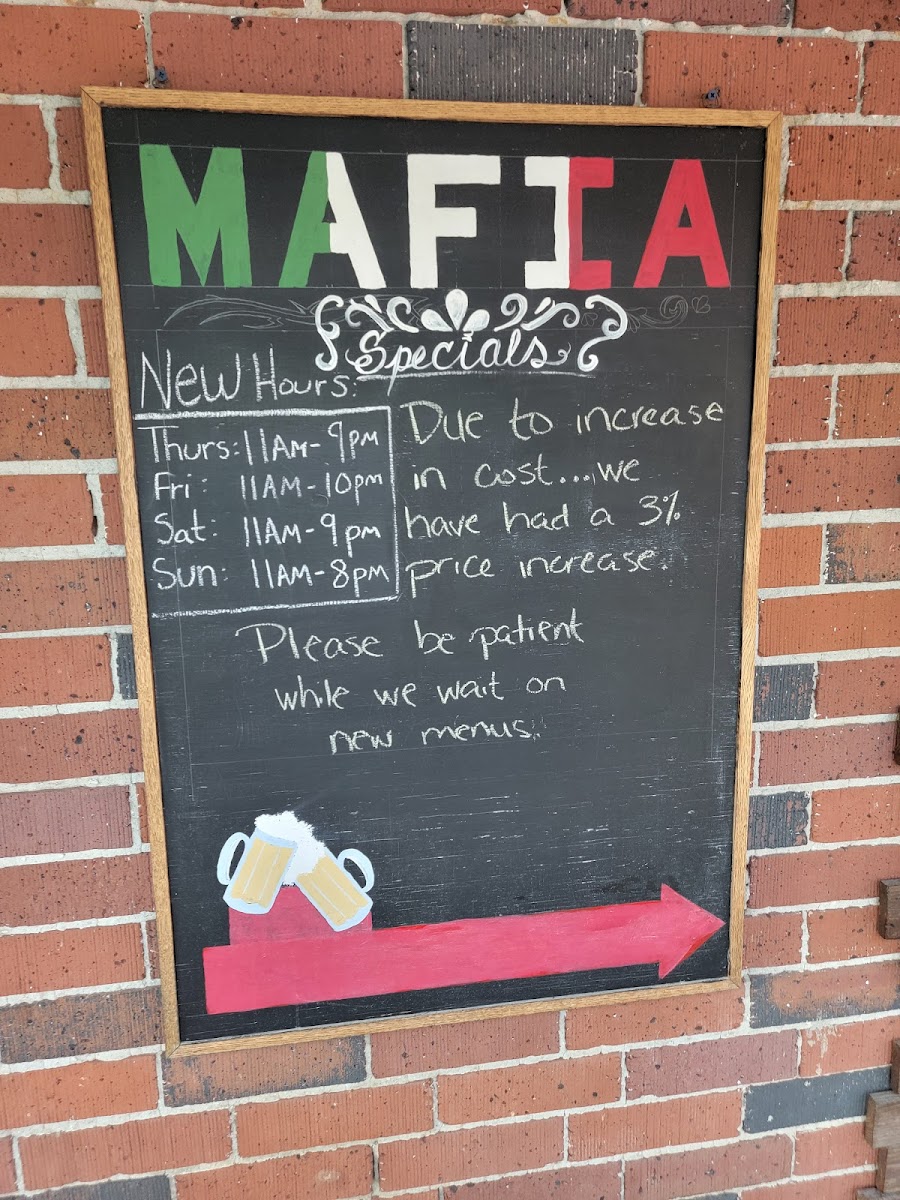 MAFIA
Specials
New Hours:
Thurs: 11AM-9PM
Fri: 11AM-10PM
Sat: 11AM-9PM
Sun: 11AM-8PM
Due to increase
in cost...we
have had a 3%
price increase.
Please be patient
while we wait on
new menus.